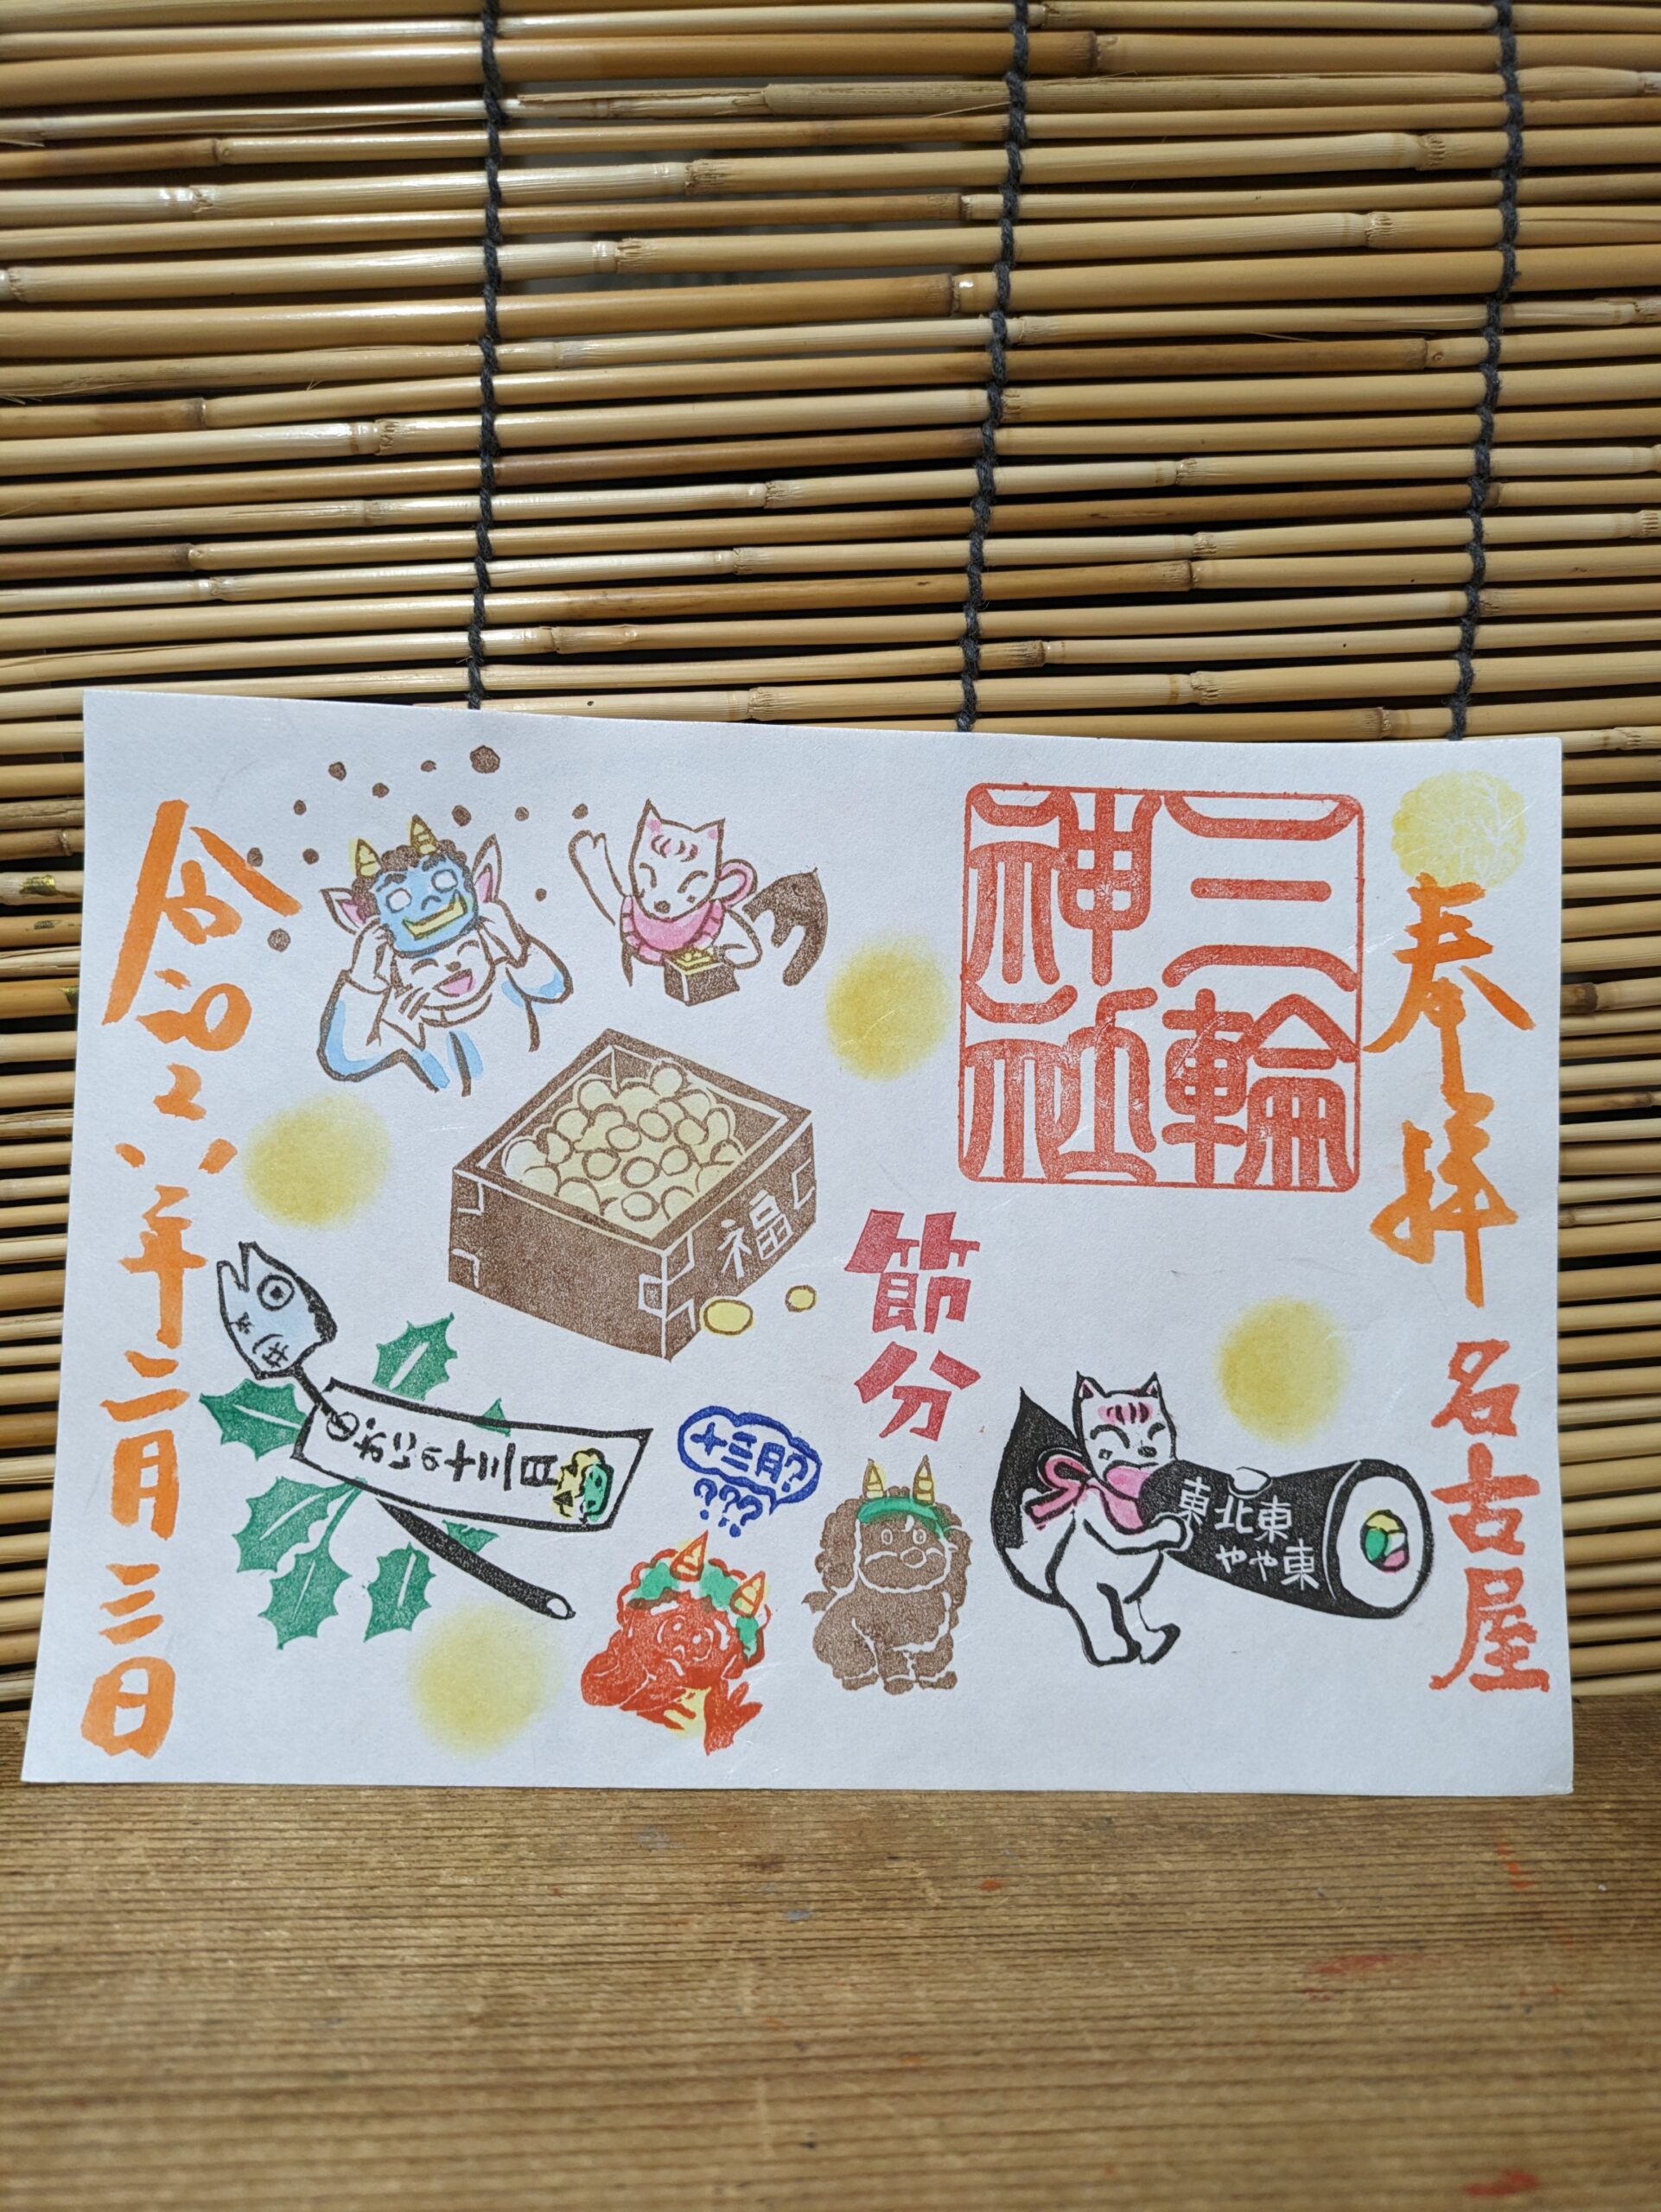 奉拝
名古屋
三輪
神社
節分
福
東北東
やや東
十三月?
???
おにの十三月
令和六年二月三日